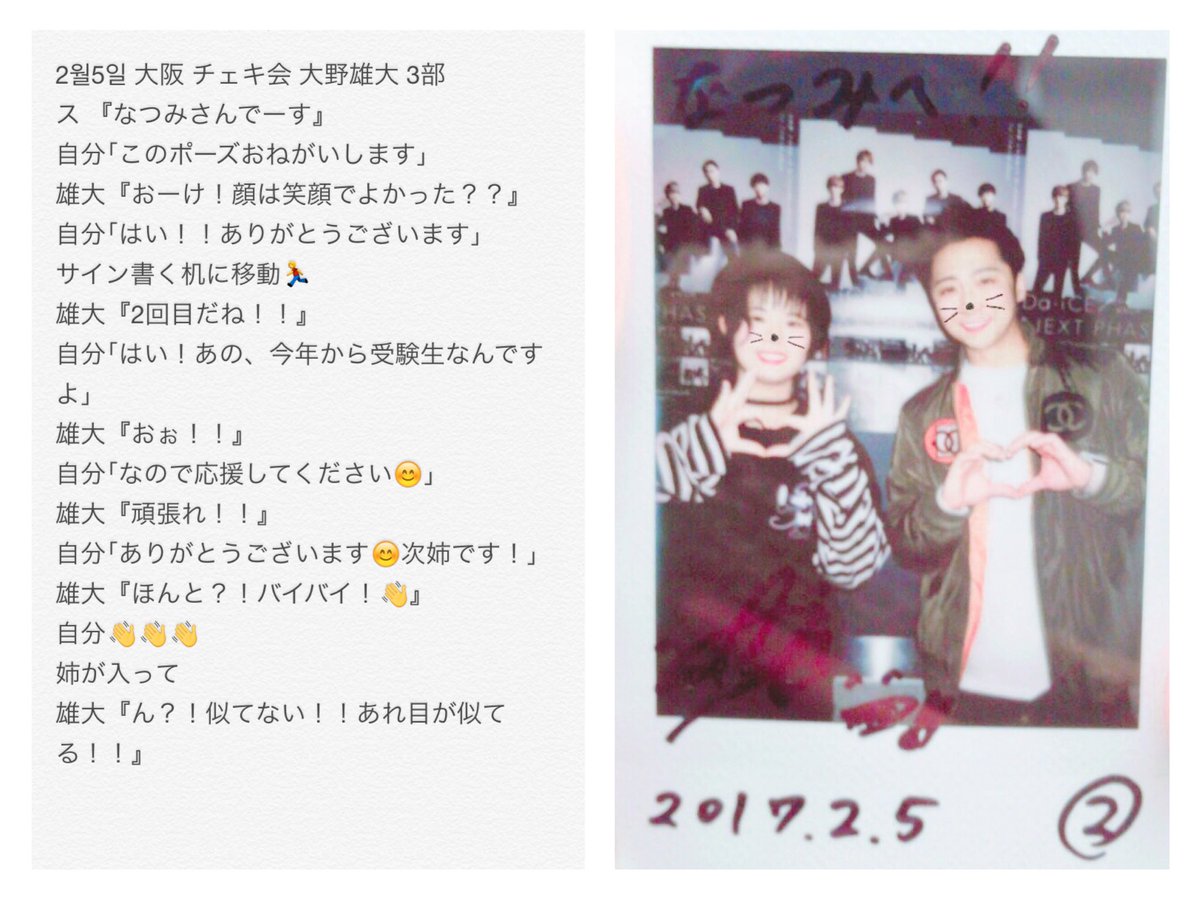 2月5日 大阪 チェキ会 大野雄大 3部
ス 『なつみさんでーす』
自分「このポーズおねがいします」
雄大『おーけ！顔は笑顔でよかった？？』
自分「はい！！ありがとうございます」
サイン書く机に移動🏃
雄大『2回目だね！！』
自分「はい！あの、今年から受験生なんです
よ」
雄大『おぉ！！』
自分「なので応援してください😊」
雄大『頑張れ！！』
自分「ありがとうございます😊次姉です！」
雄大『ほんと？！バイバイ！👋』
自分👋👋👋
姉が入って
雄大『ん？！似てない！！あれ目が似て
る！！』
なつみへ!!
Da-iCE
NEXT PHAS
PHAS
2017.2.5
②